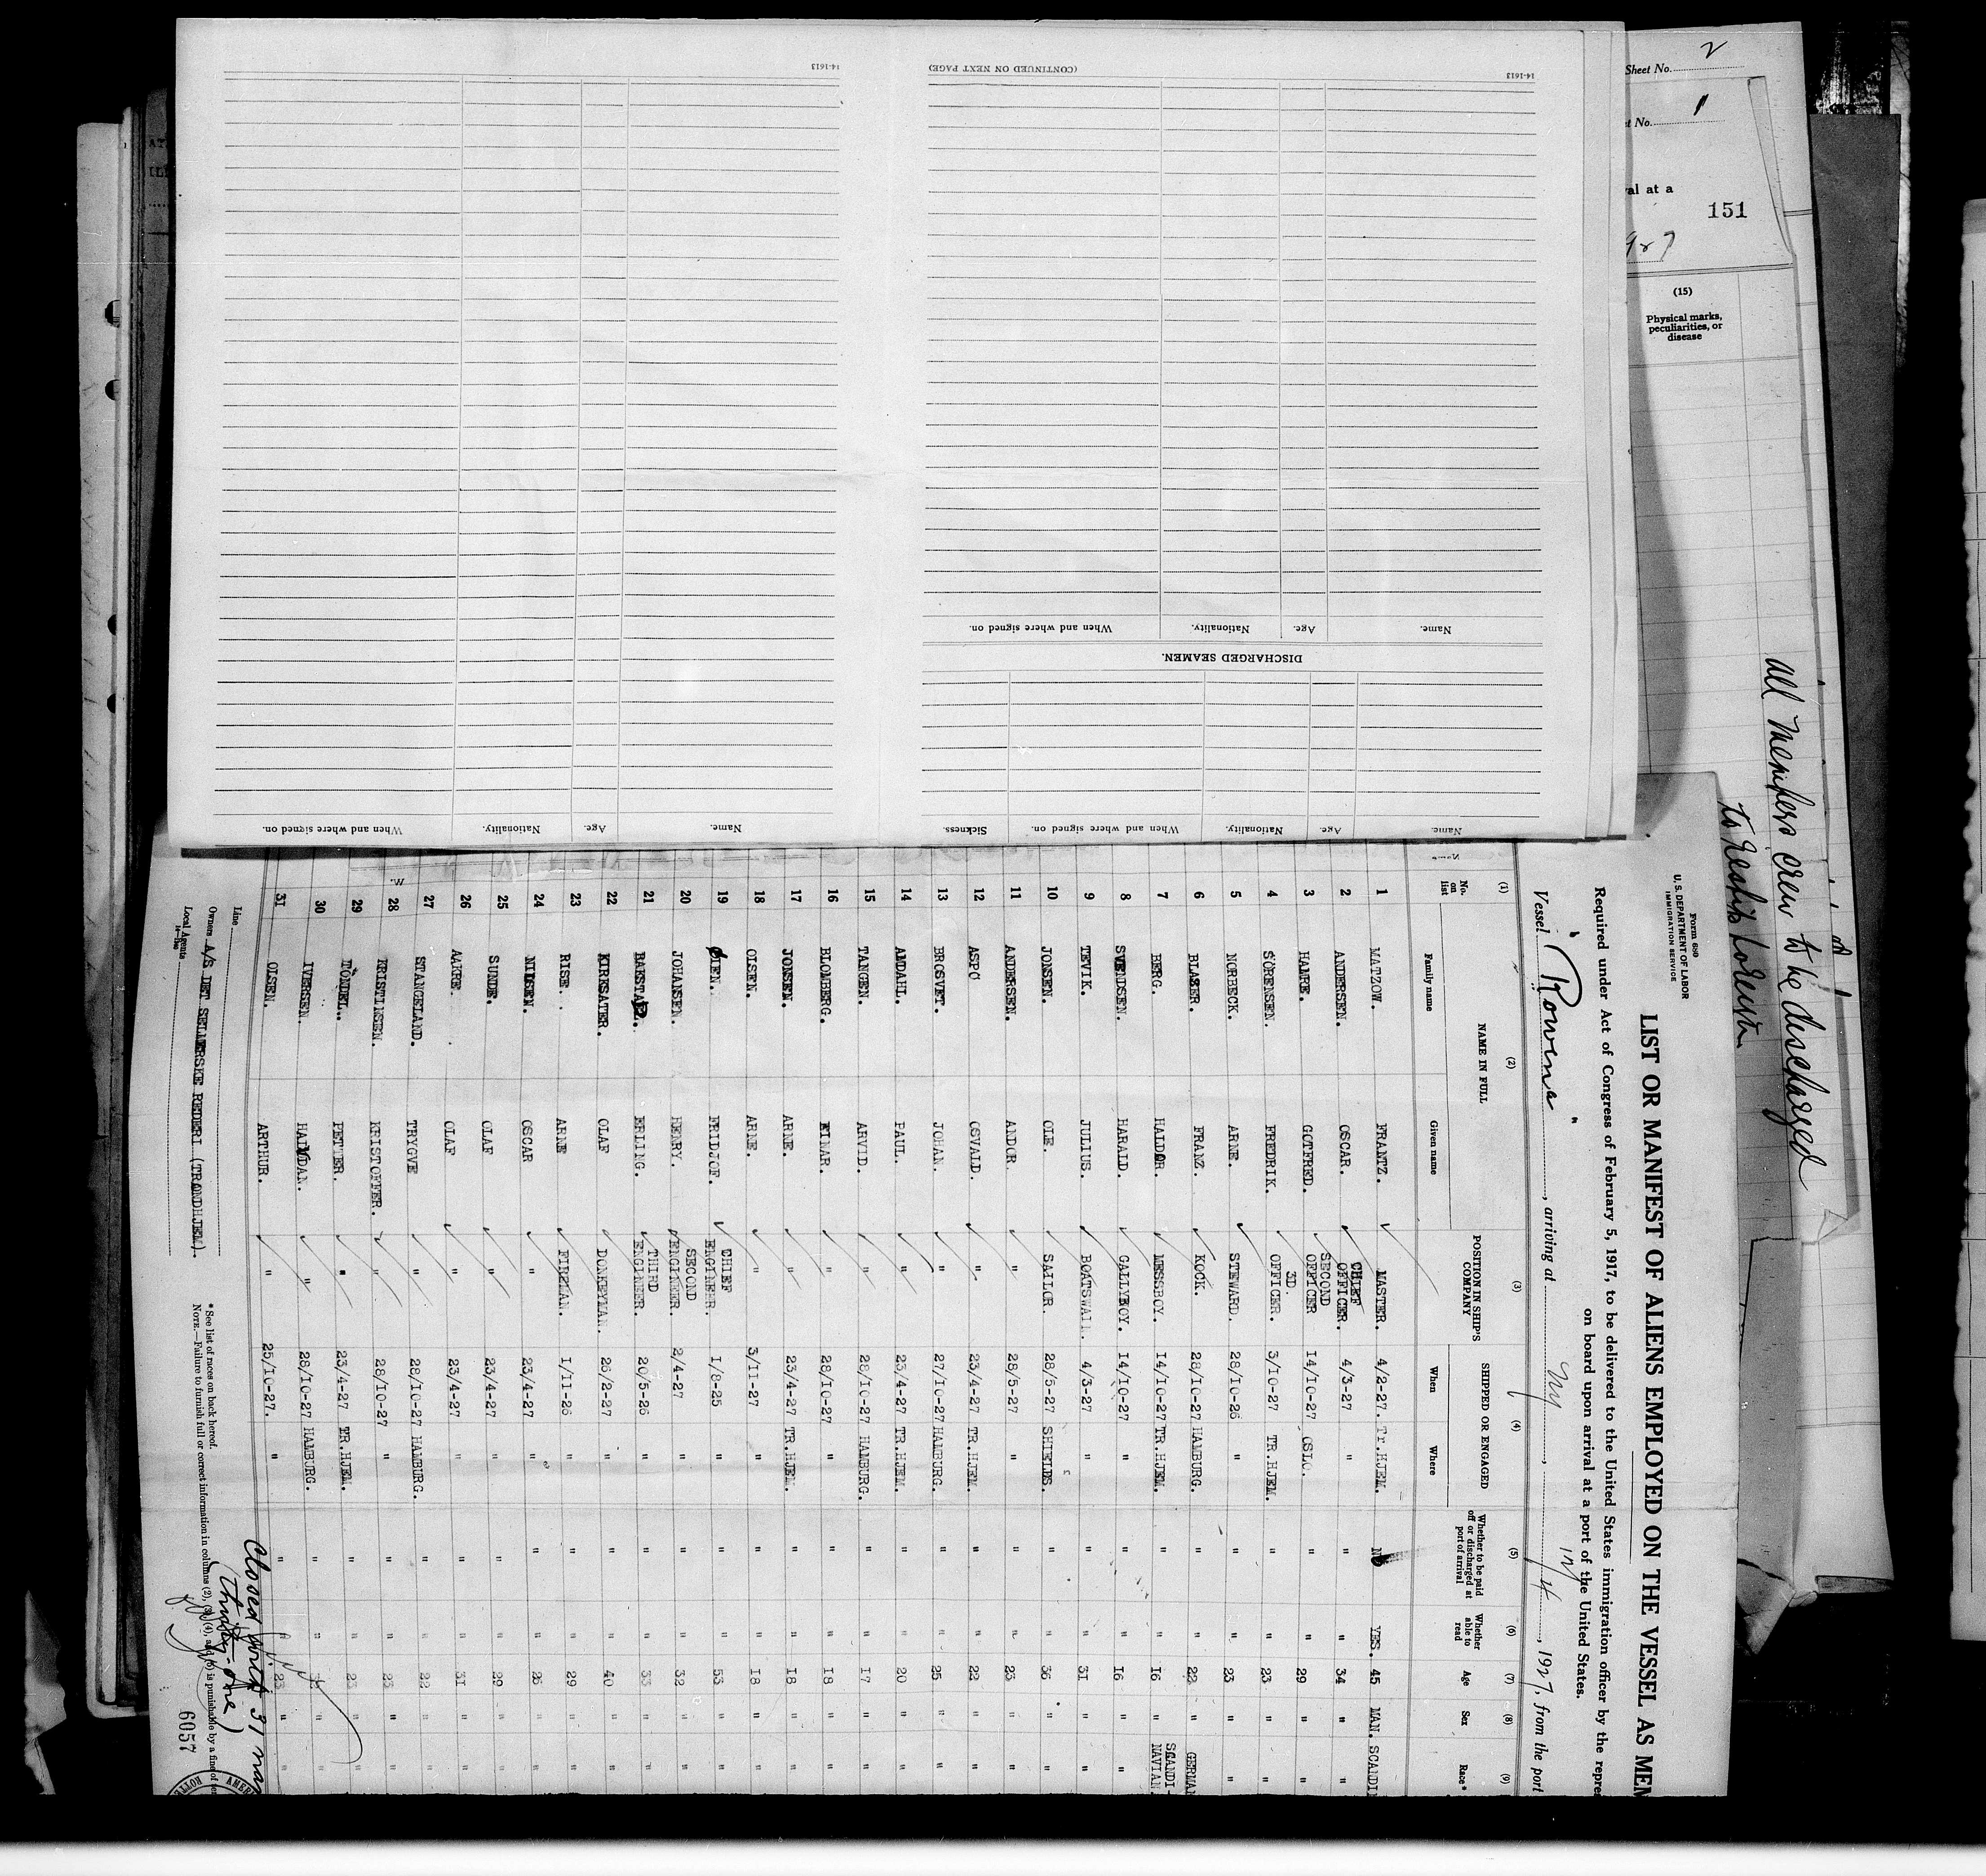 14-1613
(CONTINUED ON NEXT PAGE)
14-1613
Name.
Age.
Nationality.
When and where signed on.
DISCHARGED SEAMEN.
Name.
Age.
Nationality.
When and where signed on.
Sickness.
Name.
Age.
Nationality.
When and where signed on.
Sheet No. 2
t No. 1
val at a
151
927
(15)
Physical marks,
peculiarities, or
disease
all members crew to be discharged
to reship foreign
Form 680
U. S. DEPARTMENT OF LABOR
IMMIGRATION SERVICE
LIST OR MANIFEST OF ALIENS EMPLOYED ON THE VESSEL AS MEM
Required under Act of Congress of February 5, 1917, to be delivered to the United States immigration officer by the repre
on board upon arrival at a port of the United States.
Vessel "Rowena", arriving at NY, 4, 1927, from the port
(1) (2) (3) (4) (5) (6) (7) (8) (9)
No. on list NAME IN FULL POSITION IN SHIP'S COMPANY SHIPPED OR ENGAGED Whether to be paid off or discharged at port of arrival Whether able to read Age Sex Race*
Family name Given name When Where
1 MATZOW. FRANTZ. MASTER. 4/2-27. Tr.HJEM. NO YES. 45 MAN. SCANDI
2 ANDERSEN. OSCAR. CHIEF OFFICER. 4/3-27 " " " 34 " "
3 HAMRE. GOTFRED. SECOND OFFICER 14/10-27 OSLO. " " 29 " "
4 SÖRENSEN. FREDRIK. 3D. OFFICER. 3/10-27 TR.HJEM. " " 23 " "
5 NORBECK. ARNE. STEWARD. 28/10-26 " " " 23 " "
6 BLASER. FRANZ. KOCK. 28/10-27 HAMBURG. " " 22 " GERMAN
7 BERG. HALDOR. MESSBOY. 14/10-27 TR.HJEM. " " 16 " SCANDI-NAVIAN
8 SVENDSEN. HARALD. GALLYBOY. 14/10-27 " " " 16 " "
9 TEVIK. JULIUS. BOATSWAIN. 4/3-27 " " " 31 " "
10 JONSEN. OLE. SAILOR. 28/5-27 SHIELDS. " " 36 " "
11 ANDERSEN. ANDOR. " 28/5-27 " " " 23 " "
12 ASPO OSVALD. " 23/4-27 TR.HJEM. " " 22 " "
13 BROSVET. JOHAN. " 27/10-27 HAMBURG. " " 25 " "
14 AMDAHL. PAUL. " 23/4-27 TR.HJEM. " " 20 " "
15 TANGEN. ARVID. " 28/10-27 HAMBURG. " " 17 " "
16 BLOMBERG. EINAR. " 28/10-27 " " " 18 " "
17 JONSEN. ARNE. " 23/4-27 TR.HJEM. " " 18 " "
18 OLSEN. ARNE. " 3/11-27 " " " 18 " "
19 ØIEN. FRIDJOF. CHIEF ENGINEER. 1/8-25 " " " 53 " "
20 JOHANSEN. HENRY. SECOND ENGINEER. 2/4-27 " " " 32 " "
21 BAKSTAD. ERLING. THIRD ENGINEER. 20/5-26 " " " 33 " "
22 KIRKSATER. OLAF DONKEYMAN. 26/2-27 " " " 40 " "
23 RISE. ARNE FIREMAN. 1/11-26 " " " 29 " "
24 NILSEN. OSCAR " 23/4-27 " " " 26 " "
25 SUNDE. OLAF " 23/4-27 " " " 29 " "
26 AAKRE. OLAF " 23/4-27 " " " 31 " "
27 STANGELAND. TRYGVE " 28/10-27 HAMBURG. " " 22 " "
28 KRISTINSEN. KRISTOFFER. " 28/10-27 " " " 23 " "
29 TÖNDEL. PETTER. " 23/4-27 TR.HJEM. " " 23 " "
30 IVERSEN. HALVDAN. " 28/10-27 HAMBURG. " " " "
31 OLSEN. ARTHUR. " 25/10-27. " " " 23 " "
W.
Line
Owners A/S DET SELMERSKE REDERI (TRONDHJEM).
Local Agents
* See list of races on back hereof.
NOTE.—Failure to furnish full or correct information in columns (2), (3), (4), and (6) is punishable by a fine of ten
Closed with 31 nam
(Thirty-one)
6057
AMERI
ROTTE